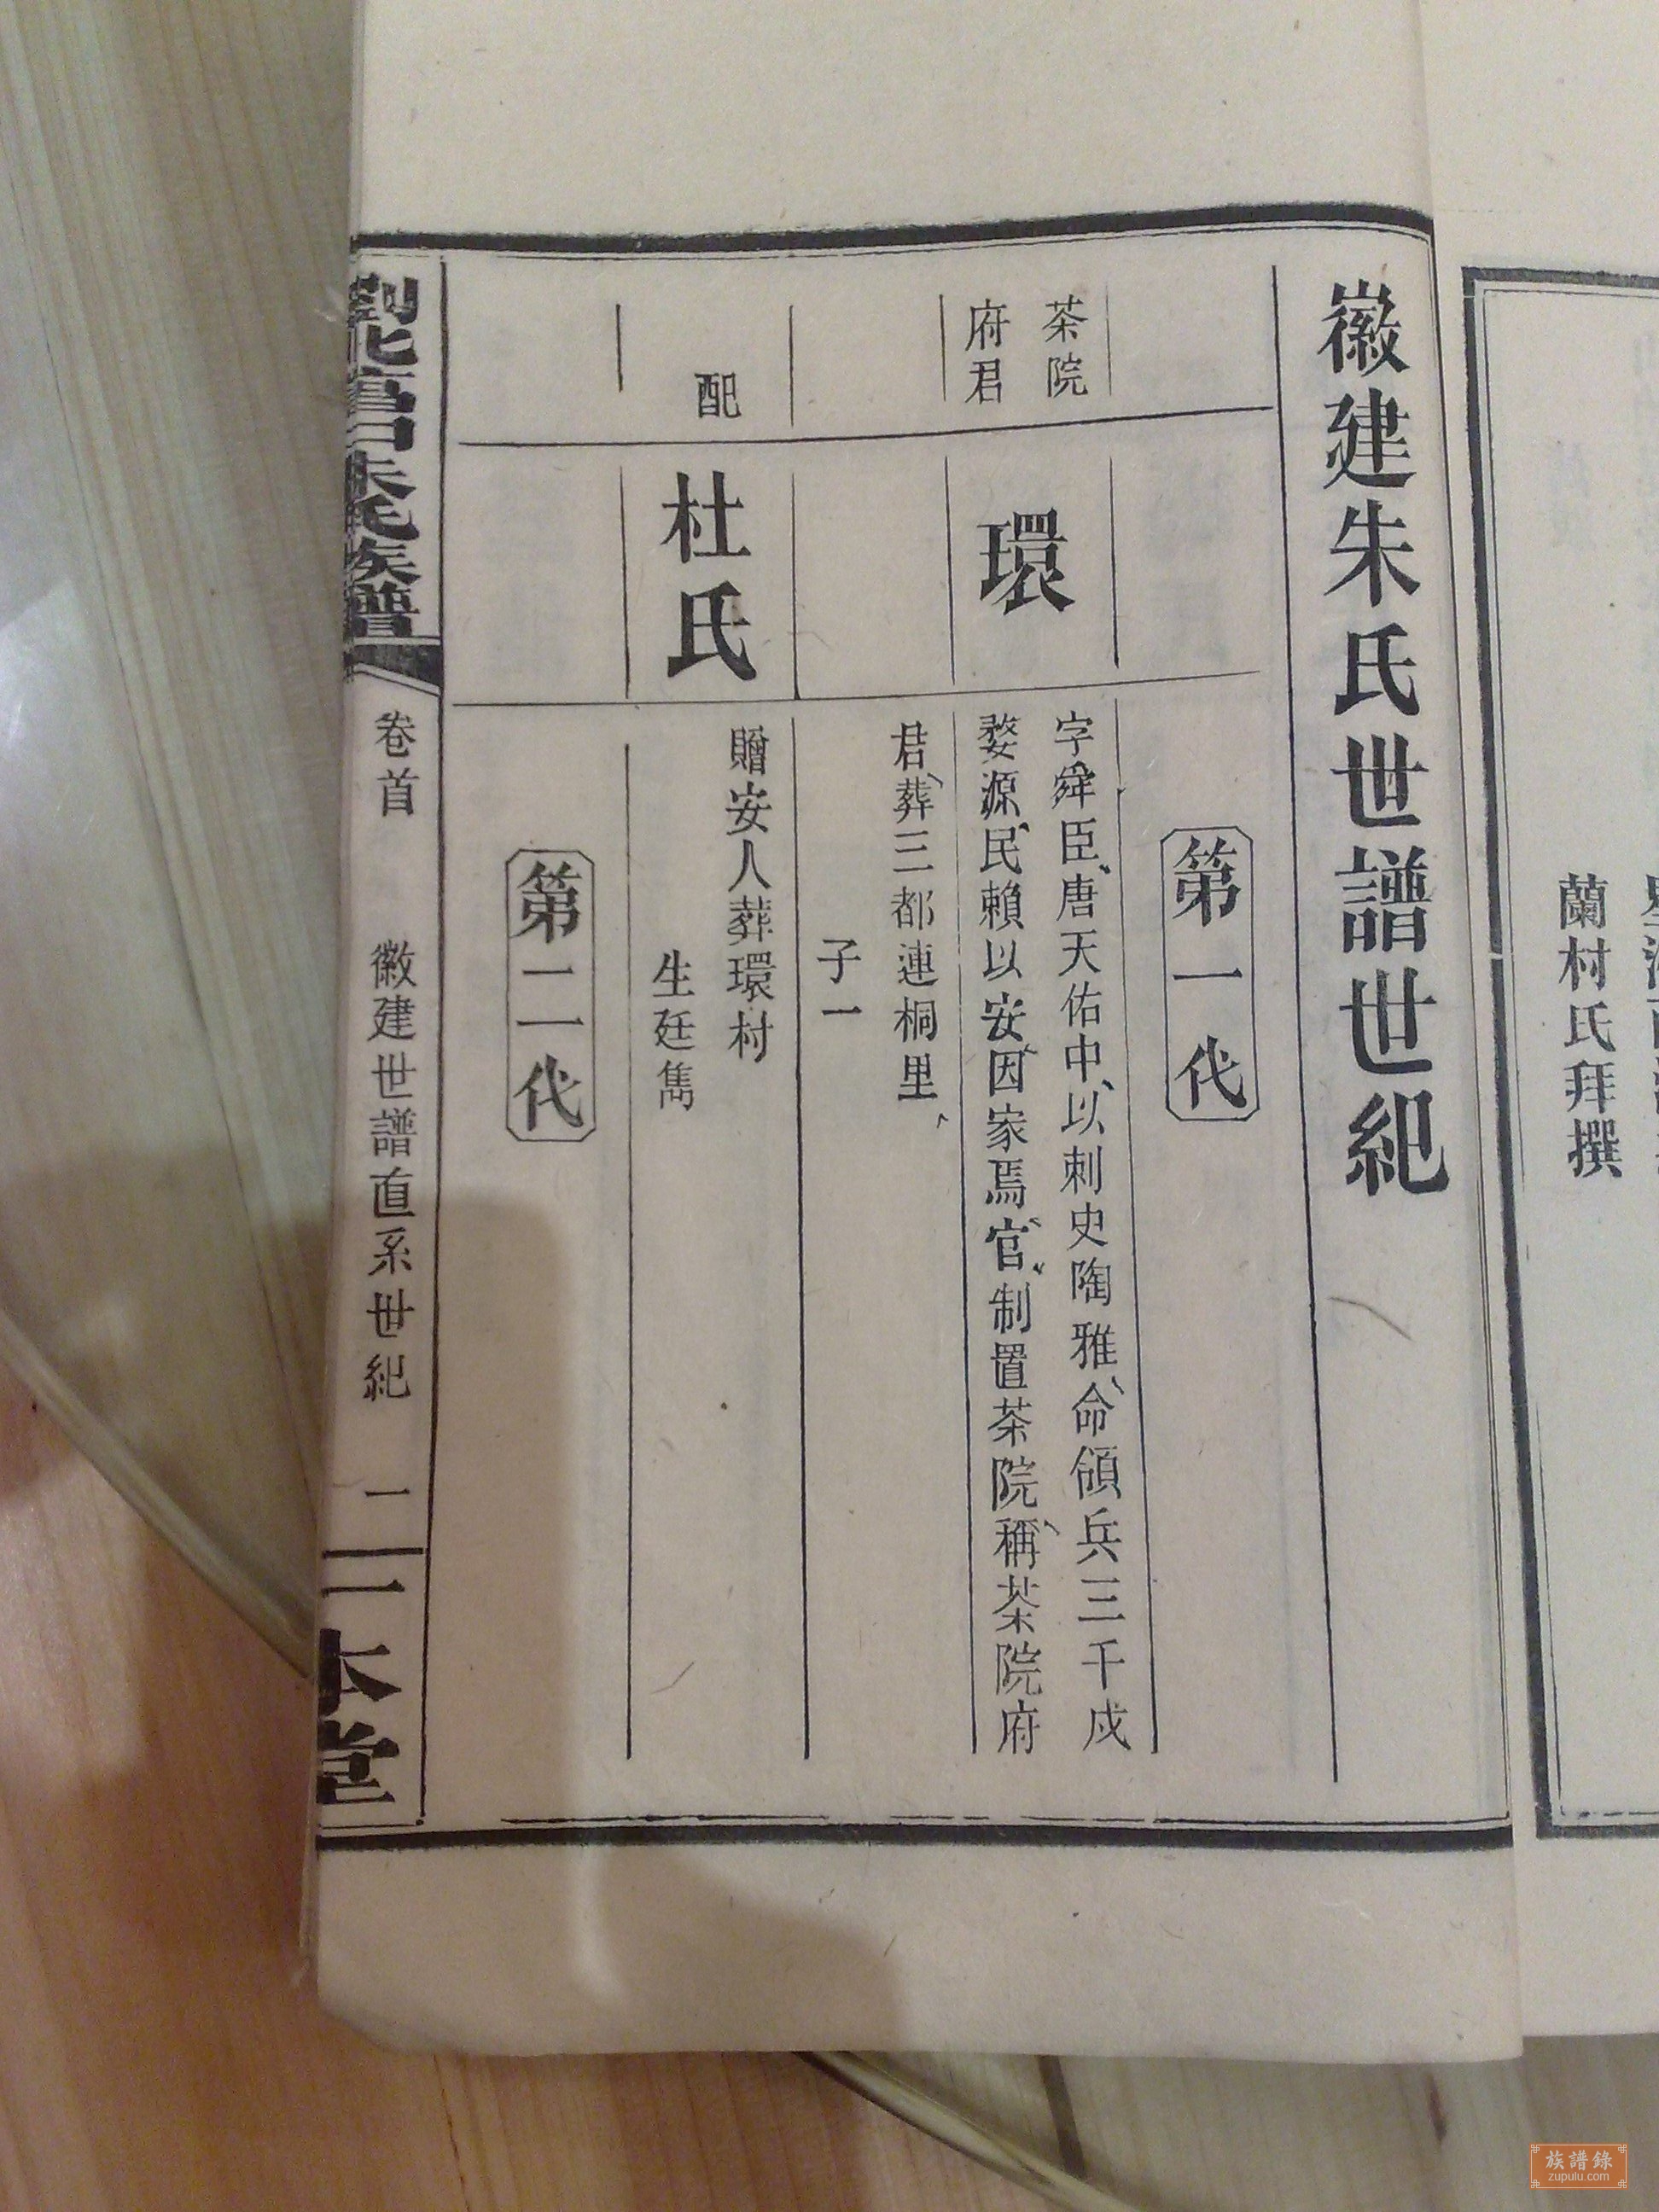 蘭村氏拜撰
徽建朱氏世譜世紀
第一代
茶院
府君
環
字舜臣、唐天佑中、以刺史陶雅、命領兵三千戍
婺源、民賴以安、因家焉、官、制置茶院、稱茶院府
君、葬三都連桐里、
子一
配
杜氏
贈安人葬環村
生廷雋
第二代
北高口朱氏族譜
卷首
徽建世譜直系世紀
一
一本堂
族譜錄
zupulu.com